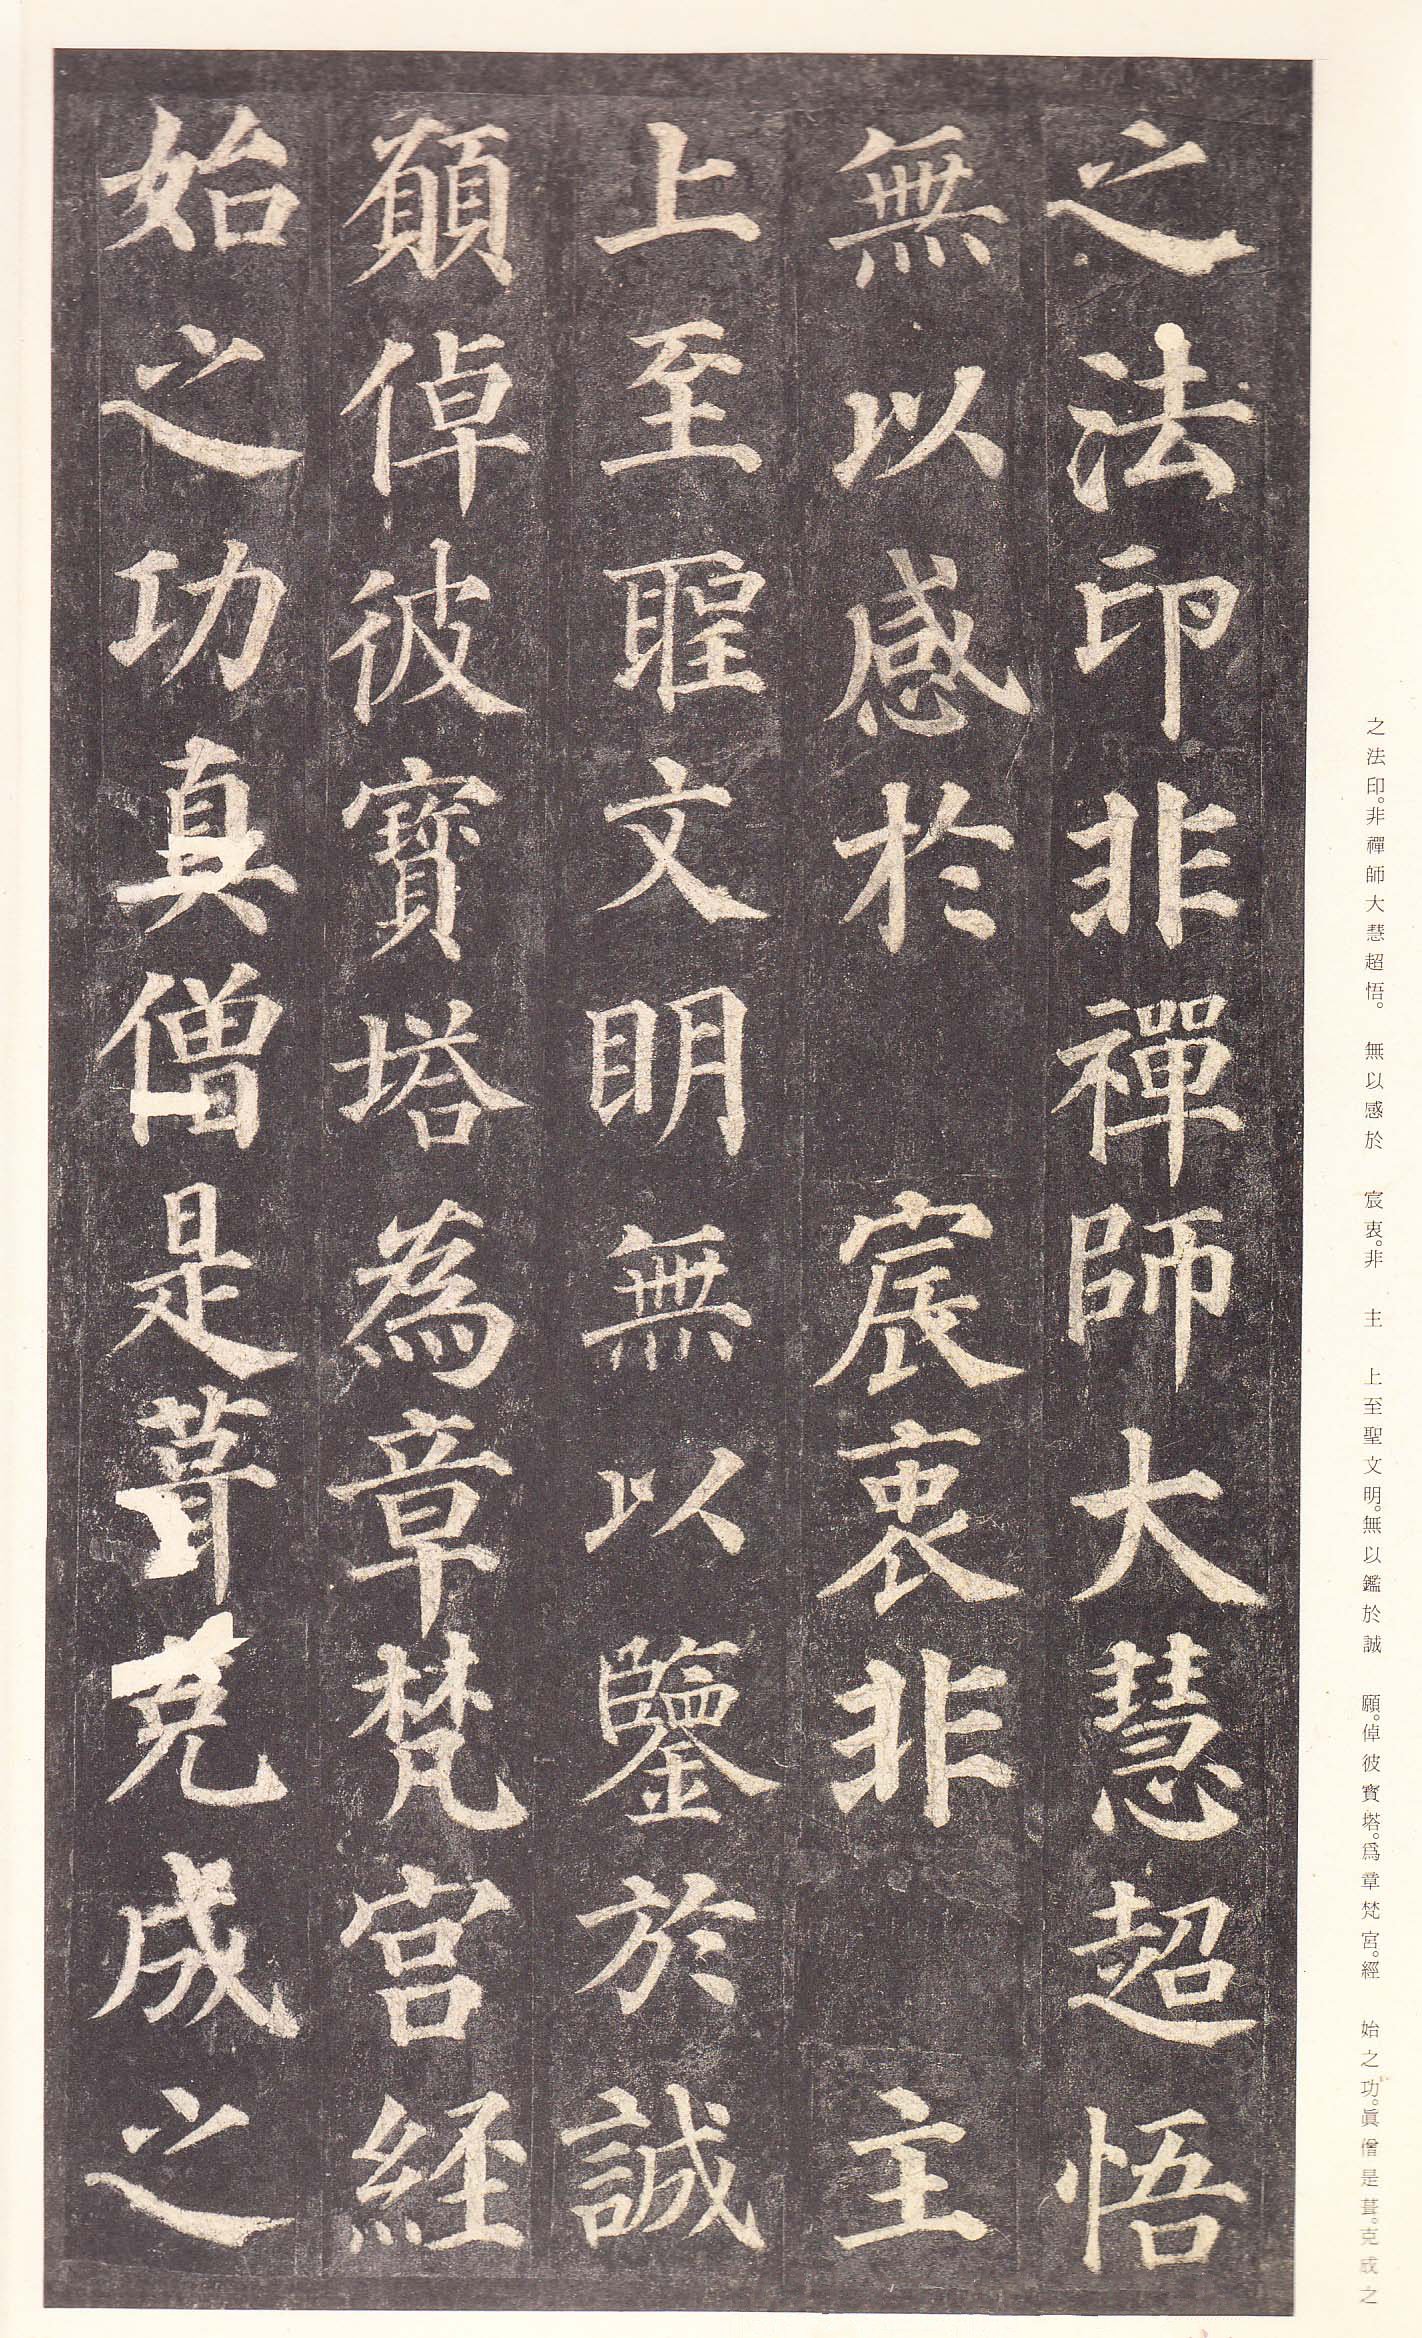 之法印非禪師大慧超悟
無以感於宸衷非主
上至聖文明無以鑒於誠
願倬彼寶塔為章梵宮経
始之功真僧是葺克成之
之法印。非禪師大慧超悟。 無以感於 宸衷。非 主 上至聖文明。無以鑑於誠 願。倬彼寶塔。爲章梵宮。經 始之功。眞僧是葺。克成之